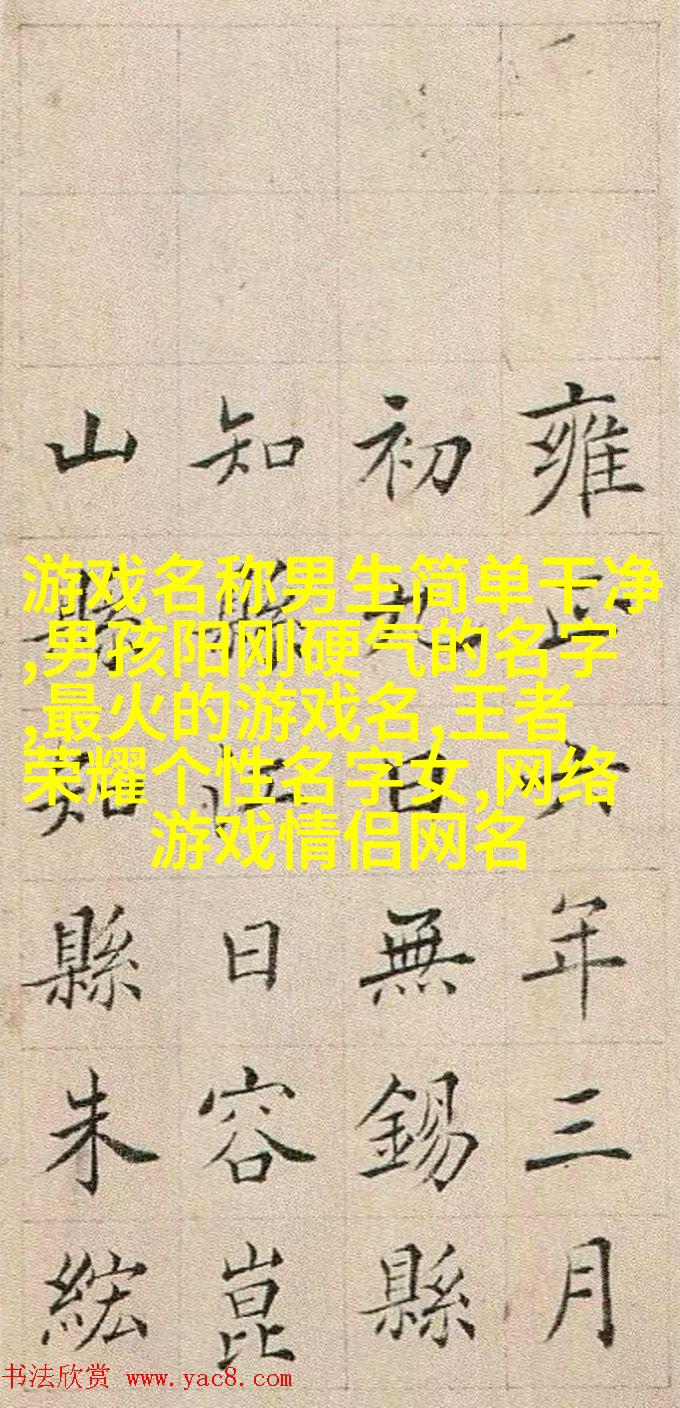 雍正六年三月
初九日無錫縣
知縣江日容崑
山縣知縣朱綋
游戏名称男生简单干净
,男孩阳刚硬气的名字
,最火的游戏名,王者
荣耀个性名字女,网络
游戏情侣网名
书法欣赏 www.yac8.com